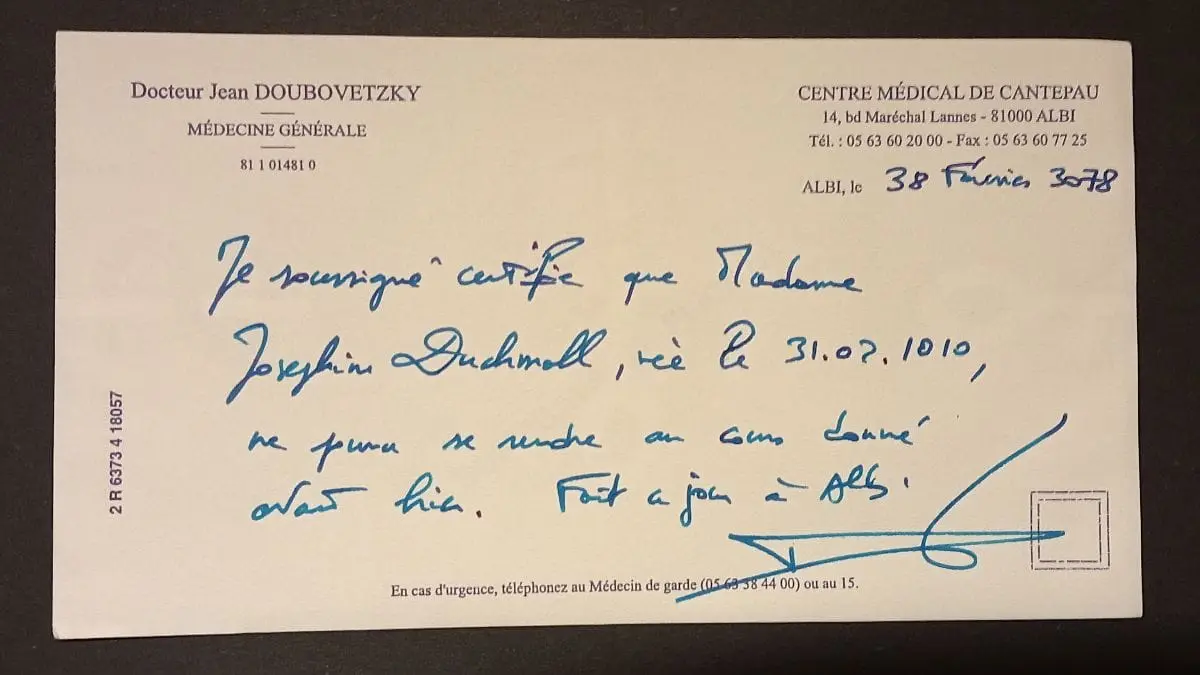 Docteur Jean DOUBOVETZKY
MÉDECINE GÉNÉRALE
81 1 01481 0
CENTRE MÉDICAL DE CANTEPAU
14, bd Maréchal Lannes - 81000 ALBI
Tél. : 05 63 60 20 00 - Fax : 05 63 60 77 25
ALBI, le 38 Février 3078
Je soussigné certifie que Madame
Josephine Duchmoll, née le 31.02.1010,
ne pourra se rendre au cours donné
avant hier. Fait ce jour à Albi.
2 R 6373 4 18057
En cas d'urgence, téléphonez au Médecin de garde (05 63 38 44 00) ou au 15.